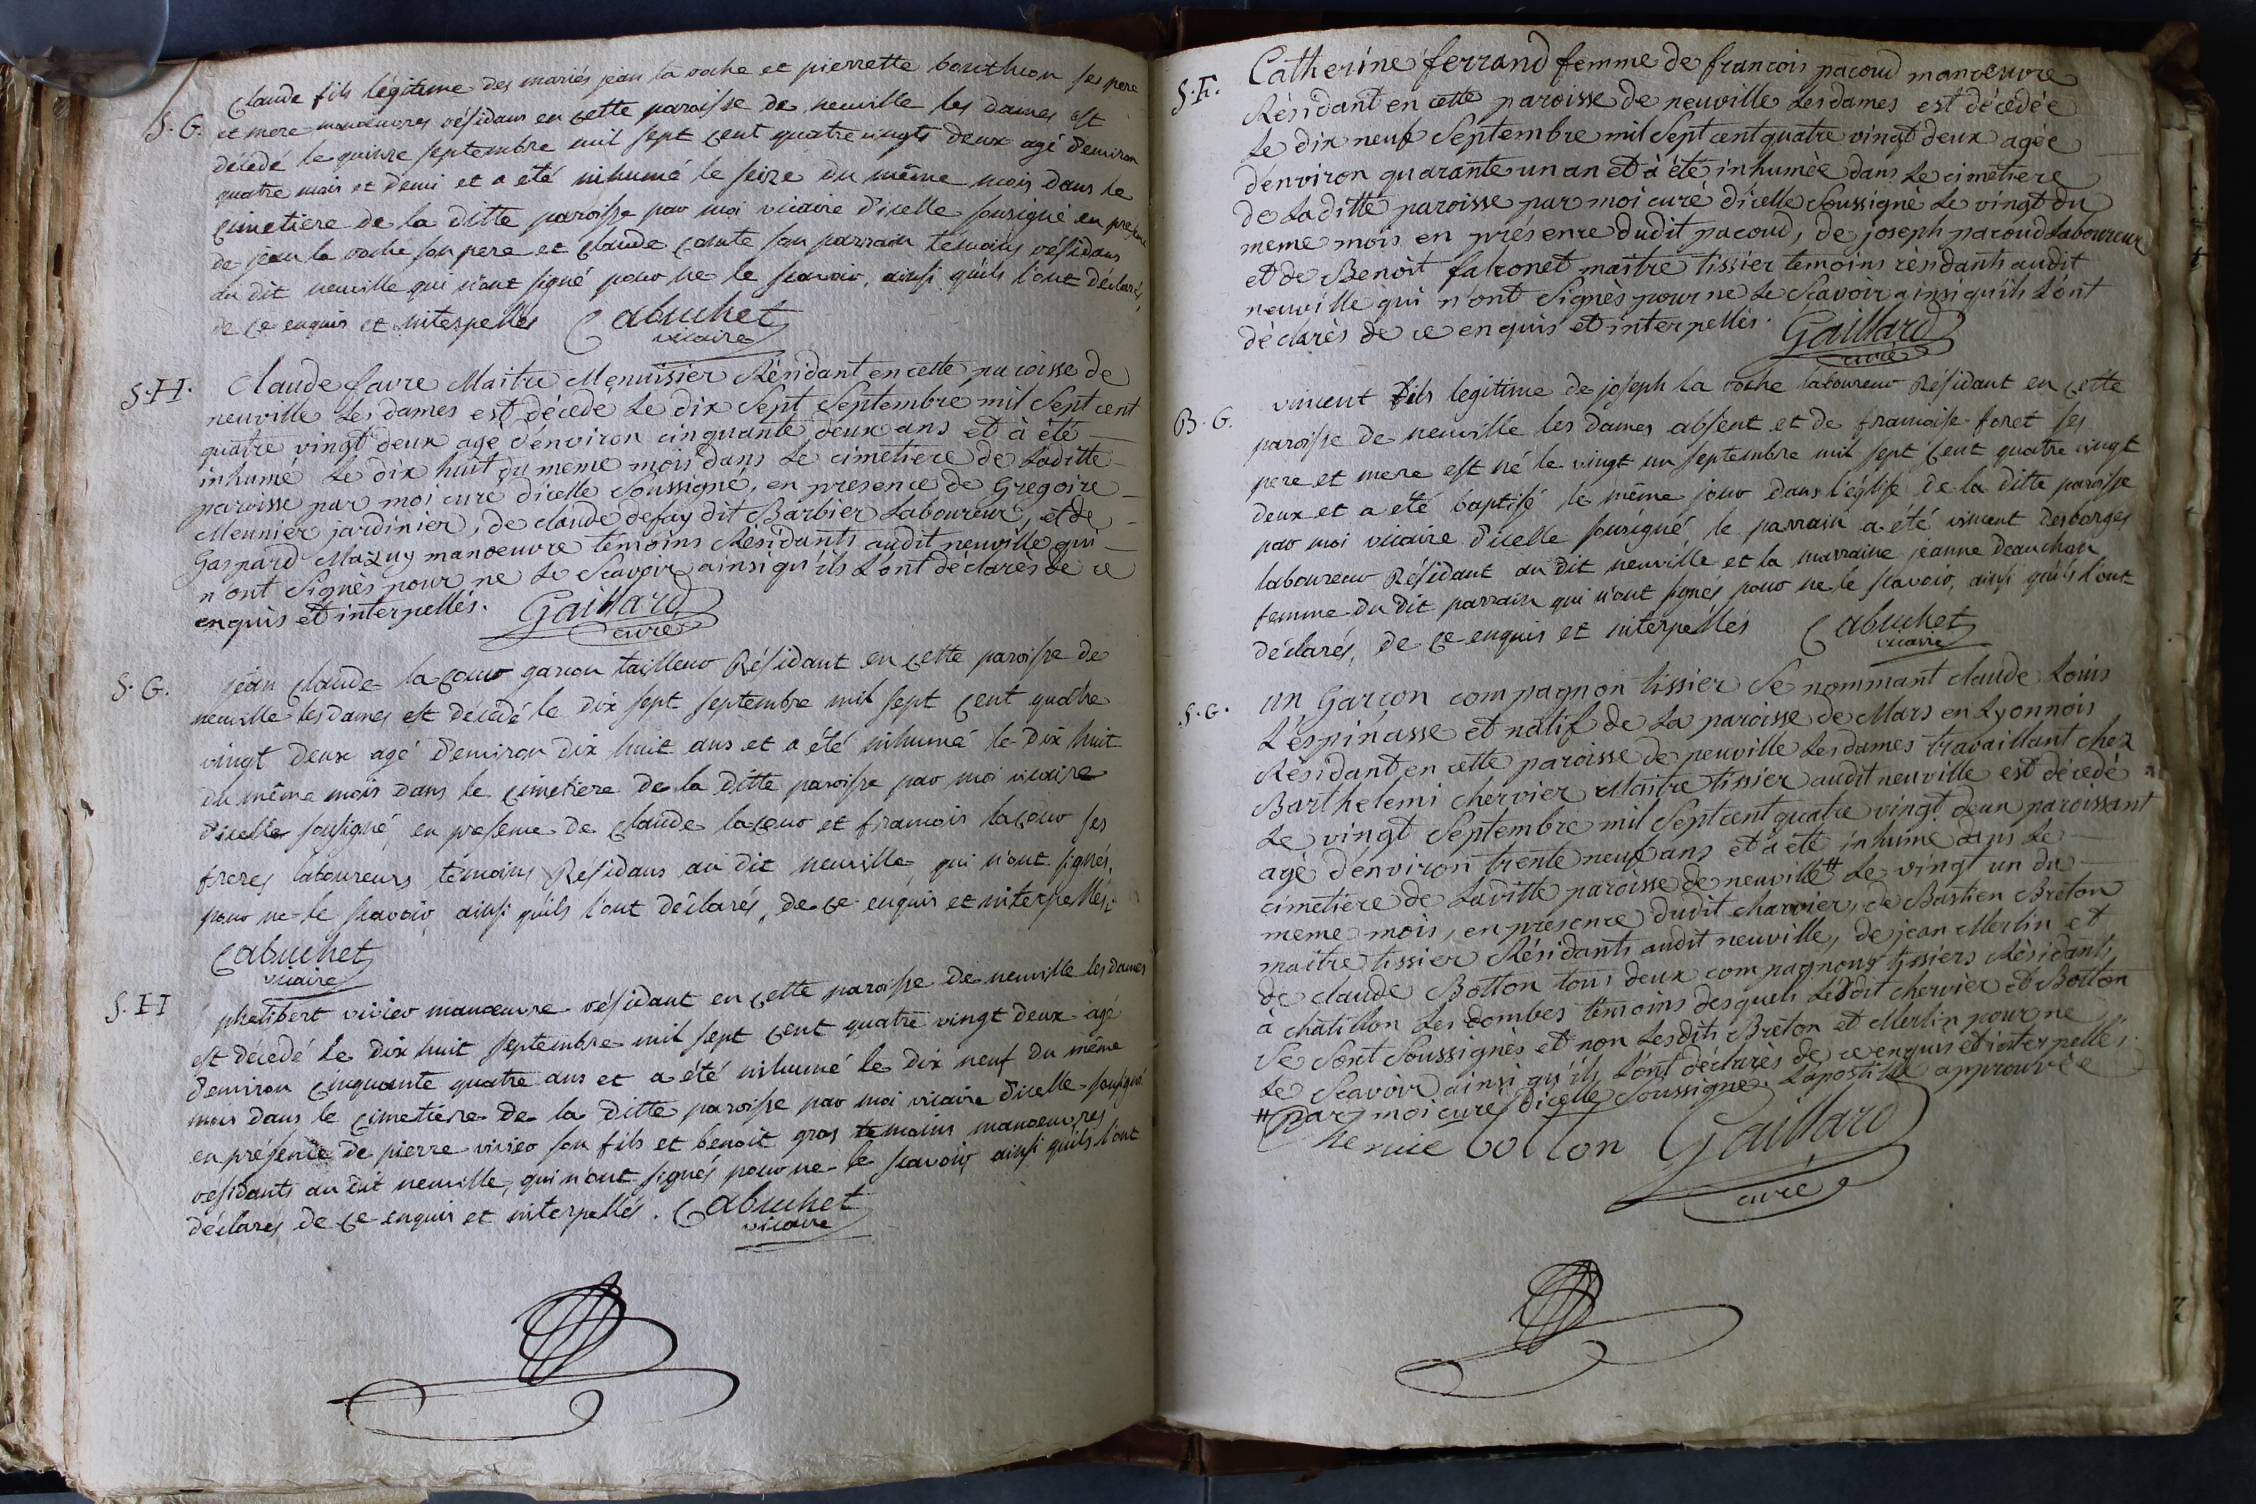 S. G.
Claude fils légitime des mariés jean la roche et pierrette bouthion ses pere
et mere manœuvres résidans en cette paroisse de neuville les dames est
décédé le quinze septembre mil sept cent quatre vingts deux agé d'environ
quatre mois et demi et a été inhumé le seize du même mois dans le
cimetiere de la ditte paroisse par moi vicaire d'icelle sousigné en présence
de jean la roche son pere et Claude comte son parrain temoins résidans
au dit neuville qui n'ont signé pour ne le scavoir, ainsi qu'ils l'ont déclarés,
de ce enquis et interpellés Cabuchet
vicaire
S. H.
Claude favre Maitre Menuisier Résidant en cette paroisse de
neuville les dames est décédé le dix sept septembre mil sept cent
quatre vingt deux agé d'environ cinquante deux ans et à été
inhumé le dix huit du meme mois dans le cimetiere de laditte
paroisse par moi curé d'icelle soussigné, en présence de Gregoire
Meunier jardinier, de claude defay dit Barbier Laboureur, et de
Gaspard Mazuy manoeuvre témoins Résidants audit neuville qui
n'ont signés pour ne le scavoir ainsi qu'ils l'ont déclarés de ce
enquis et interpellés. Gaillard
curé
S. G.
jean Claude lacour garçon tailleur Résidant en cette paroisse de
neuville les dames est décédé le dix sept septembre mil sept cent quatre
vingt deux agé d'environ dix huit ans et a été inhumé le dix huit
du même mois dans le cimetiere de la ditte paroisse par moi vicaire
d'icelle sousigné, en présence de Claude lacour et francois lacour ses
freres laboureurs témoins Résidans au dit neuville, qui n'ont signés,
pour ne le scavoir, ainsi qu'ils l'ont déclarés, de ce enquis et interpellés.
Cabuchet
vicaire
S. H
philibert vivier manœuvre résidant en cette paroisse de neuville les dames
est décédé le dix huit septembre mil sept cent quatre vingt deux agé
d'environ cinquante quatre ans et a été inhumé le dix neuf du même
mois dans le cimetiere de la ditte paroisse par moi vicaire d'icelle sousigné
en présence de pierre vivier son fils et benoit gros temoins manoeuvres
résidants au dit neuville, qui n'ont signés pour ne le scavoir, ainsi qu'ils l'ont
déclarés de ce enquis et interpellés. Cabuchet
vicaire
S. F.
Catherine ferrand femme de francois pacoud manoeuvre
Résidant en cette paroisse de neuville les dames est décédée
Le dix neuf Septembre mil Sept cent quatre vingt deux agée
d'environ quarante un an et à été inhumée dans le cimetiere
de Laditte paroisse par moi curé d'icelle Soussigné Le vingt du
meme mois en présence dudit pacoud, de joseph pacoud Laboureur
et de Benoit falconet maitre tissier temoins residants audit
neuville qui n'ont Signés pour ne Le Scavoir ainsi qu'ils L'ont
déclarés de ce enquis et interpellés. Gaillard
curé
B. G.
vincent fils legitime de joseph la roche laboureur Résidant en cette
paroisse de neuville les dames absent et de francoise foret ses
pere et mere est né le vingt un septembre mil sept cent quatre vingt
deux et a été baptisé le même jour dans l'église de la ditte paroisse
par moi vicaire d'icelle sousigné, le parrain a été vincent desborges
laboureur Résidant au dit neuville et la marraine jeanne deauchan
femme du dit parrain qui n'ont signés pour ne le scavoir, ainsi qu'ils l'ont
déclarés, de ce enquis et interpellés Cabuchet
vicaire
S. G.
un Garçon compagnon tissier Se nommant claude Louis
L'espinasse et natif de La paroisse de Mars en Lyonnois
Résidant en cette paroisse de neuville Les dames travaillant chez
Barthelemi chervier Maitre tissier audit neuville est décédé
Le vingt Septembre mil Sept cent quatre vingt deux paroissant
agé d'environ trente neuf ans et à été inhumé dans Le
cimetiere de Laditte paroisse de neuville # Le vingt un du
meme mois, en présence dudit charvier, de Bastien Breton
maitre tissier Résidants audit neuville, de jean Merlin et
de claude Botton tous deux compagnons tissiers Résidants
à chatillon Les dombes temoins desquels Ledit chervier et Botton
Se Sont Soussignés et non Lesdits Breton et Merlin pour ne
Le Scavoir ainsi qu'ils L'ont déclarés de ce enquis et interpellés.
# Par moi curé d'icelle Soussigné. L'apostille approuvée
botton Gaillard
curé